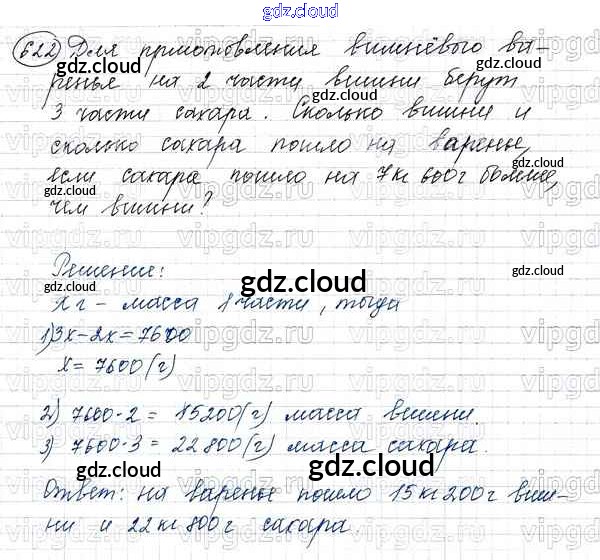 gdz.cloud
622 Для приготовления вишнёвого ва-
gdz.cloud gdz.cloud
ренья на 2 части вишни берут
3 части сахара. Сколько вишни и
сколько сахара пошло на варенье,
gdz.cloud gdz.cloud
если сахара пошло на 7кг 600г больше,
чем вишни?
Решение:
gdz.cloud
x г - масса 1 части, тогда
1) 3x-2x=7600
x=7600(г)
gdz.cloud gdz.cloud
2) 7600·2 = 15200(г) масса вишни.
3) 7600·3 = 22800(г) масса сахара.
gdz.cloud gdz.cloud
Ответ: на варенье пошло 15кг200г виш-
ни и 22кг800г сахара.
gdz.cloud
vipgdz.ru